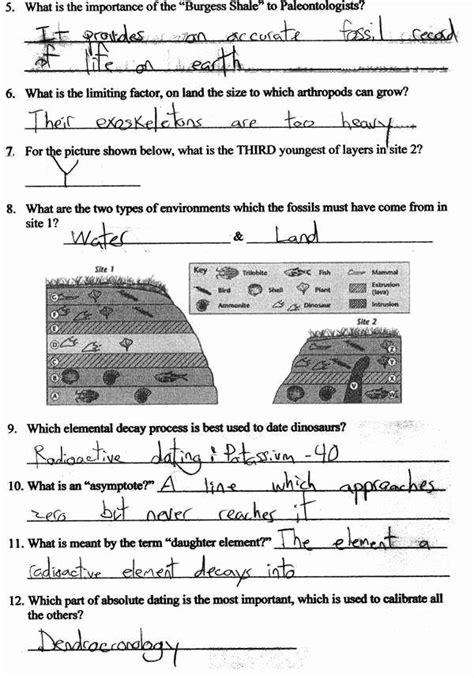 5. What is the importance of the "Burgess Shale" to Paleontologists?
It provides an accurate fossil record
of life on earth
6. What is the limiting factor, on land the size to which arthropods can grow?
Their exoskeletons are too heavy
7. For the picture shown below, what is the THIRD youngest of layers in site 2?
Y
8. What are the two types of environments which the fossils must have come from in
site 1?
Water & Land
Site 1
Key Trilobite Fish Mammal
Bird Shell Plant Extrusion (lava)
Ammonite Dinosaur Intrusion
Site 2
G
F
E
D
C
B
A
9. Which elemental decay process is best used to date dinosaurs?
Radioactive dating; Potassium -40
10. What is an "asymptote?" A line which approaches
zero but never reaches it
11. What is meant by the term "daughter element?" The element a
radioactive element decays into
12. Which part of absolute dating is the most important, which is used to calibrate all
the others?
Dendrocronology